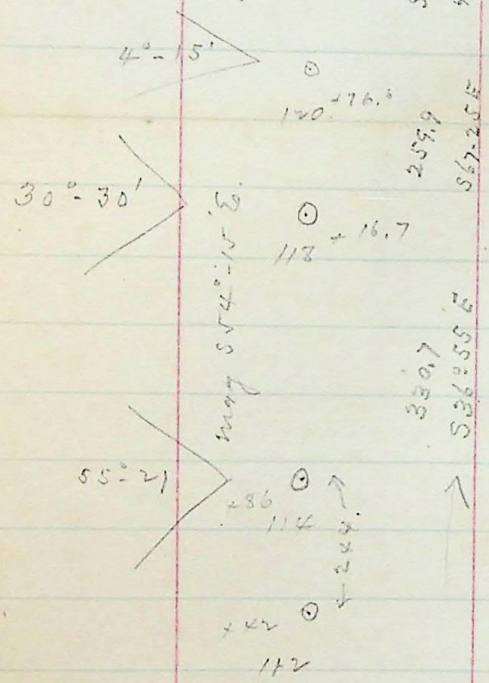 4°-15'
120 +76.6
259.9
S67-25E
30°-30'
118 + 16.7
mag S54°-15'E.
330.7
S36°55 E
55°-21
+86
114
244
+42
112